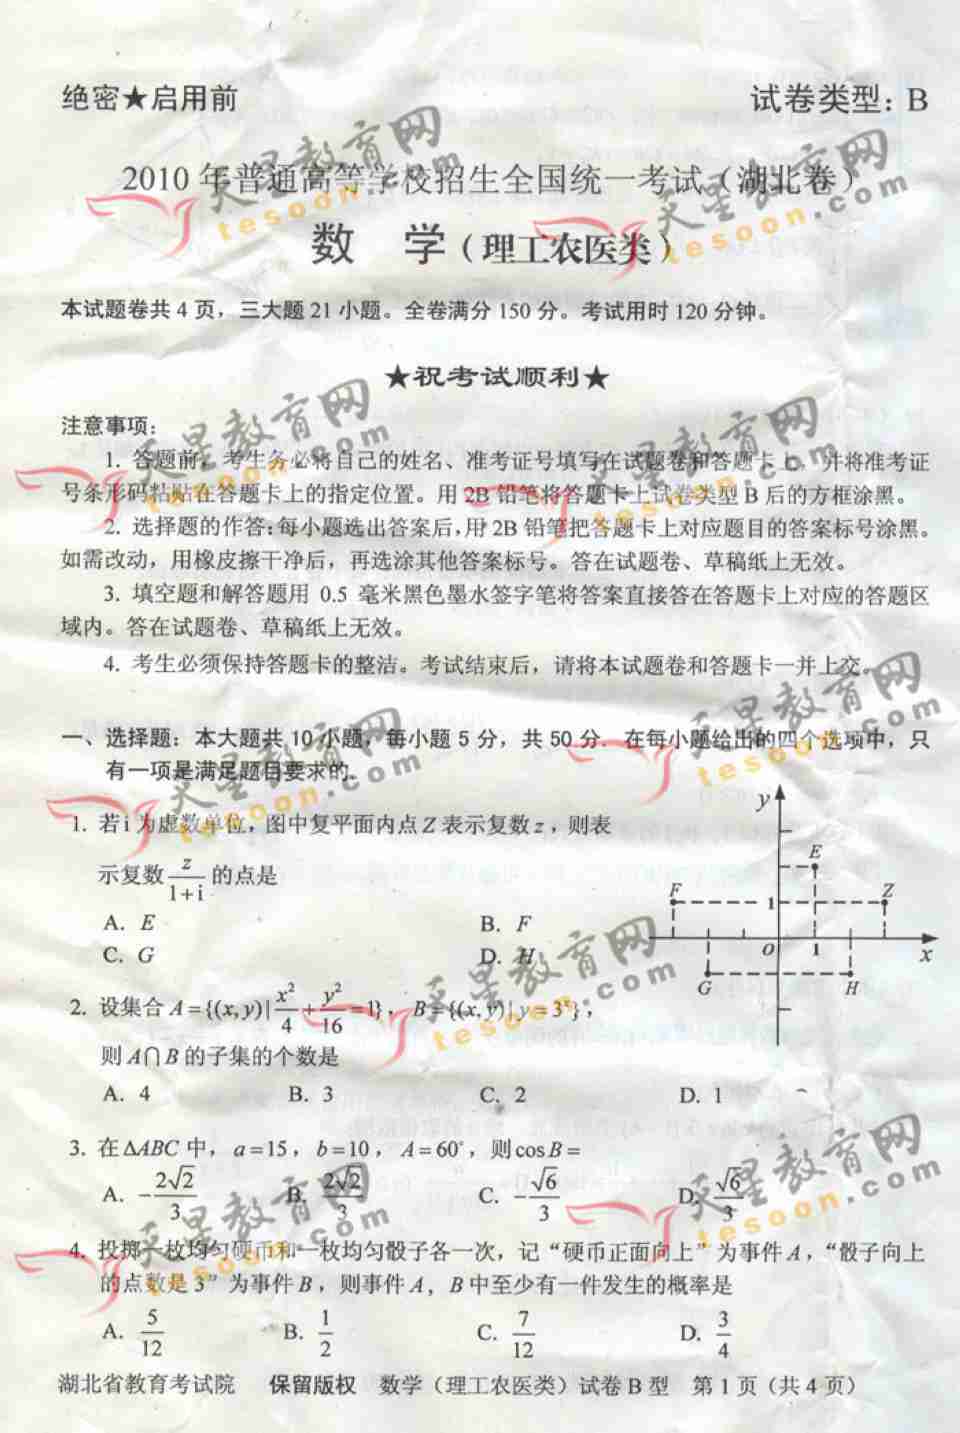 绝密★启用前 试卷类型：B
2010 年普通高等学校招生全国统一考试（湖北卷）
数 学（理工农医类）
本试题卷共 4 页，三大题 21 小题。全卷满分 150 分。考试用时 120 分钟。
★祝考试顺利★
注意事项：
1. 答题前，考生务必将自己的姓名、准考证号填写在试题卷和答题卡上，并将准考证
号条形码粘贴在答题卡上的指定位置。用 2B 铅笔将答题卡上试卷类型 B 后的方框涂黑。
2. 选择题的作答：每小题选出答案后，用 2B 铅笔把答题卡上对应题目的答案标号涂黑。
如需改动，用橡皮擦干净后，再选涂其他答案标号。答在试题卷、草稿纸上无效。
3. 填空题和解答题用 0.5 毫米黑色墨水签字笔将答案直接答在答题卡上对应的答题区
域内。答在试题卷、草稿纸上无效。
4. 考生必须保持答题卡的整洁。考试结束后，请将本试题卷和答题卡一并上交。
一、选择题：本大题共 10 小题，每小题 5 分，共 50 分．在每小题给出的四个选项中，只
有一项是满足题目要求的．
1. 若 i 为虚数单位，图中复平面内点 Z 表示复数 z，则表
示复数 z/(1+i) 的点是
A. E B. F
C. G D. H
y
E
F 1 Z
O 1 x
G H
2. 设集合 A={(x,y)| x²/4 + y²/16 =1}，B={(x,y)| y=3ˣ}，
则 A∩B 的子集的个数是
A. 4 B. 3 C. 2 D. 1
3. 在 ΔABC 中，a=15，b=10，A=60°，则 cos B=
A. −2√2/3 B. 2√2/3 C. −√6/3 D. √6/3
4. 投掷一枚均匀硬币和一枚均匀骰子各一次，记“硬币正面向上”为事件 A，“骰子向上
的点数是 3”为事件 B，则事件 A，B 中至少有一件发生的概率是
A. 5/12 B. 1/2 C. 7/12 D. 3/4
湖北省教育考试院 保留版权 数学（理工农医类）试卷 B 型 第 1 页（共 4 页）
天星教育网
tesoon.com
天星教育网
tesoon.com
天星教育网
tesoon.com
天星教育网
tesoon.com
天星教育网
tesoon.com
天星教育网
tesoon.com
天星教育网
tesoon.com
天星教育网
tesoon.com
天星教育网
tesoon.com